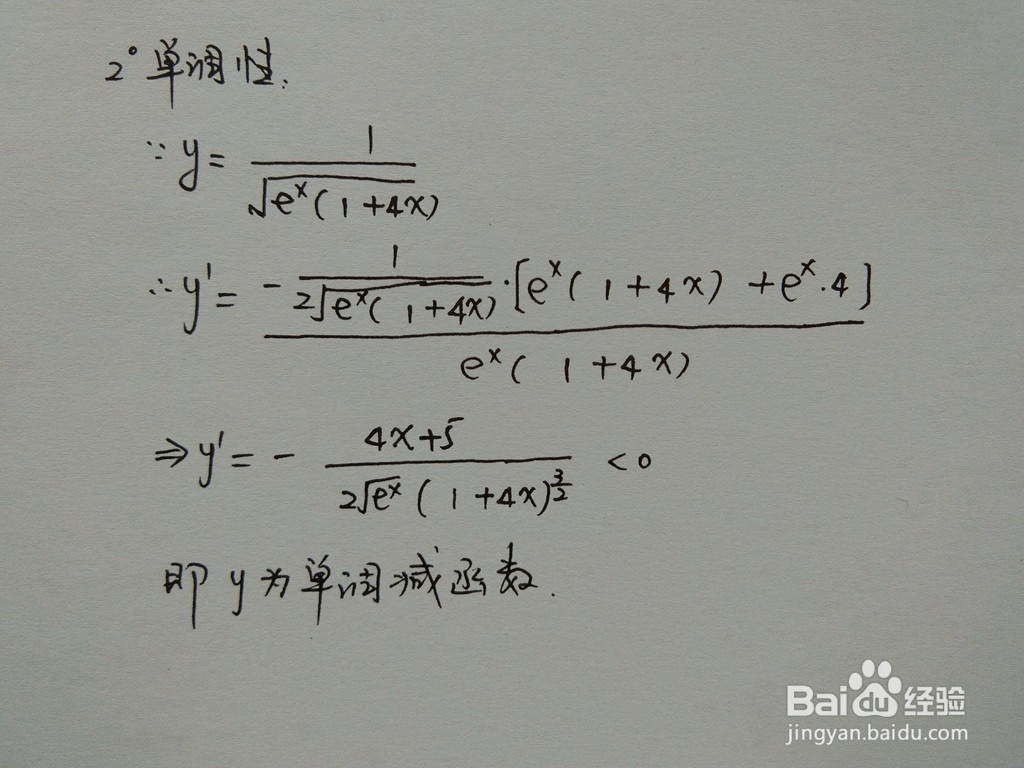 2° 单调性.
∵ y = 1 / √(e^x(1+4x))
∴ y' = - 1 / 2√(e^x(1+4x)) · [e^x(1+4x) + e^x·4] / e^x(1+4x)
⇒ y' = - 4x+5 / 2√(e^x) (1+4x)^(3/2) < 0
即 y 为单调减函数.
Baidu 经验
jingyan.baidu.com